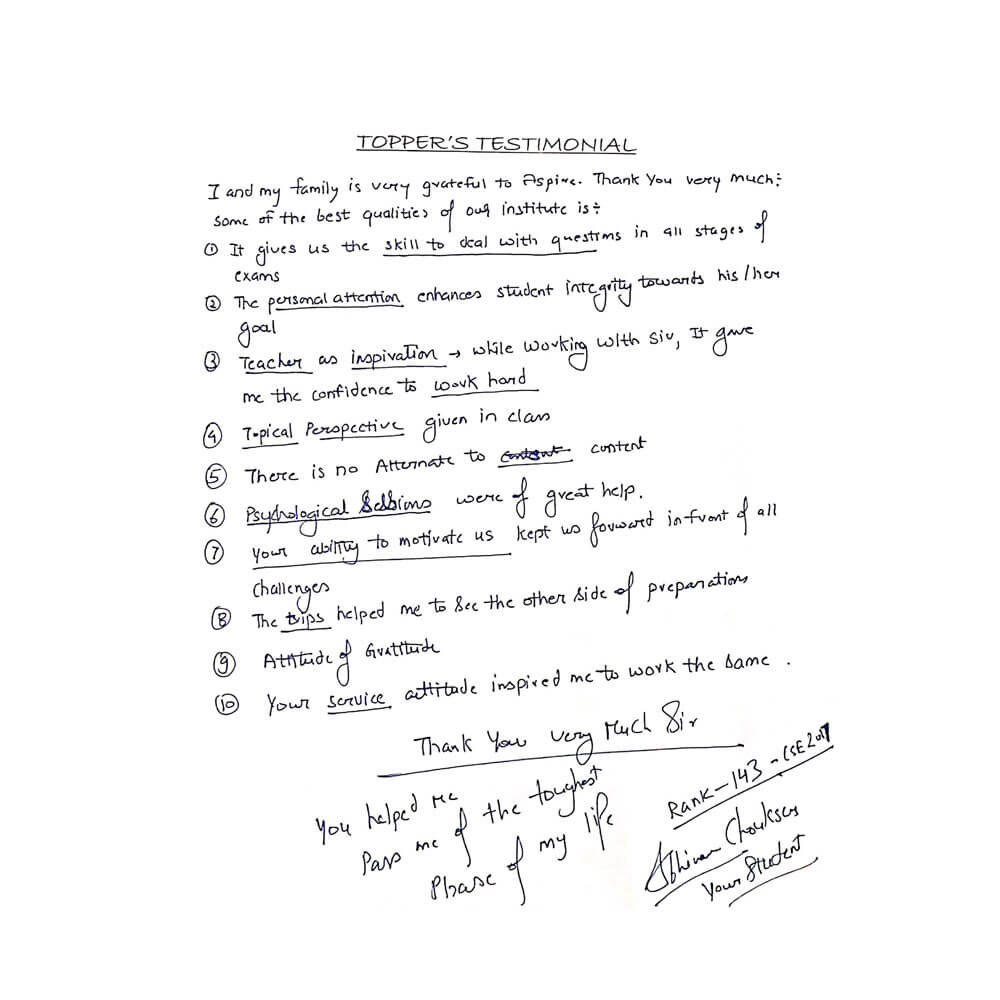 TOPPER'S TESTIMONIAL
I and my family is very grateful to Aspire. Thank You very much:
Some of the best qualities of our institute is:
① It gives us the skill to deal with questions in all stages of
exams
② The personal attention enhances student integrity towards his/her
goal
③ Teacher as inspiration → while working with sir, It gave
me the confidence to work hard
④ Topical Perspective given in class
⑤ There is no Alternate to content
⑥ Psychological Sessions were of great help.
⑦ Your ability to motivate us kept us forward infront of all
challenges
⑧ The trips helped me to see the other side of preparations
⑨ Attitude of Gratitude
⑩ Your service attitude inspired me to work the same.
Thank You very Much Sir
You helped me
Pass me of the toughest
Phase of my life
Rank-143-CSE2017
Abhinav Chouksey
Your Student